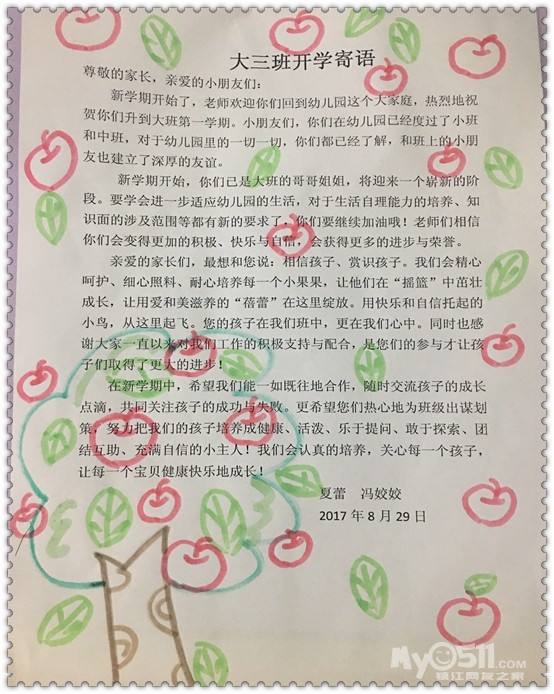 大三班开学寄语
尊敬的家长，亲爱的小朋友们：
新学期开始了，老师欢迎你们回到幼儿园这个大家庭，热烈地祝
贺你们升到大班第一学期。小朋友们，你们在幼儿园已经度过了小班
和中班，对于幼儿园里的一切一切，你们都已经了解，和班上的小朋
友也建立了深厚的友谊。
新学期开始，你们已是大班的哥哥姐姐，将迎来一个崭新的阶
段。要学会进一步适应幼儿园的生活，对于生活自理能力的培养、知
识面的涉及范围等都有新的要求了，你们要继续加油哦！老师们相信
你们会变得更加的积极、快乐与自信，会获得更多的进步与荣誉。
亲爱的家长们，最想和您说：相信孩子、赏识孩子。我们会精心
呵护、细心照料、耐心培养每一个小果果，让他们在“摇篮”中茁壮
成长，让用爱和美滋养的“蓓蕾”在这里绽放。用快乐和自信托起的
小鸟，从这里起飞。您的孩子在我们班中，更在我们心中。同时也感
谢大家一直以来对我们工作的积极支持与配合，是您们的参与才让孩
子们取得了更大的进步！
在新学期中，希望我们能一如既往地合作，随时交流孩子的成长
点滴，共同关注孩子的成功与失败。更希望您们热心地为班级出谋划
策，努力把我们的孩子培养成健康、活泼、乐于提问、敢于探索、团
结互助、充满自信的小主人！我们会认真的培养，关心每一个孩子，
让每一个宝贝健康快乐地成长！
夏蕾 冯姣姣
2017 年 8 月 29 日
My0511.com
镇江网友之家